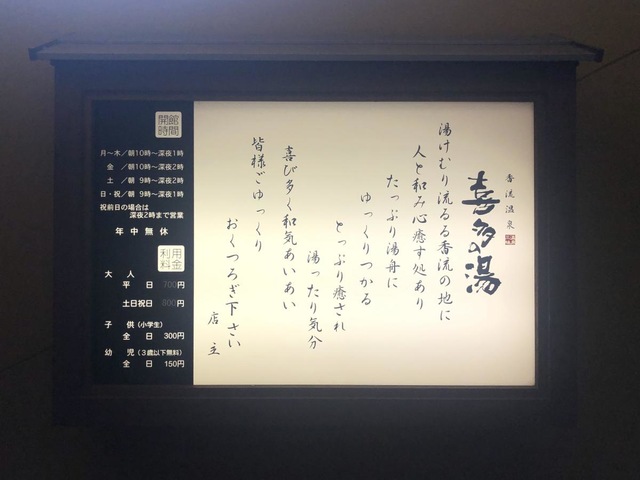 香流温泉
喜多の湯
湯けむり流るる香流の地に
人と和み心癒す処あり
たっぷり湯舟に
ゆっくりつかる
とっぷり癒され
湯ったり気分
喜び多く和気あいあい
皆様ごゆっくり
おくつろぎ下さい
店主
開館時間
月～木／朝10時～深夜1時
金／朝10時～深夜2時
土／朝 9時～深夜2時
日・祝／朝 9時～深夜1時
祝前日の場合は
深夜2時まで営業
年中無休
利用料金
大人
平日 700円
土日祝日 800円
子供（小学生）
全日 300円
幼児（3歳以下無料）
全日 150円